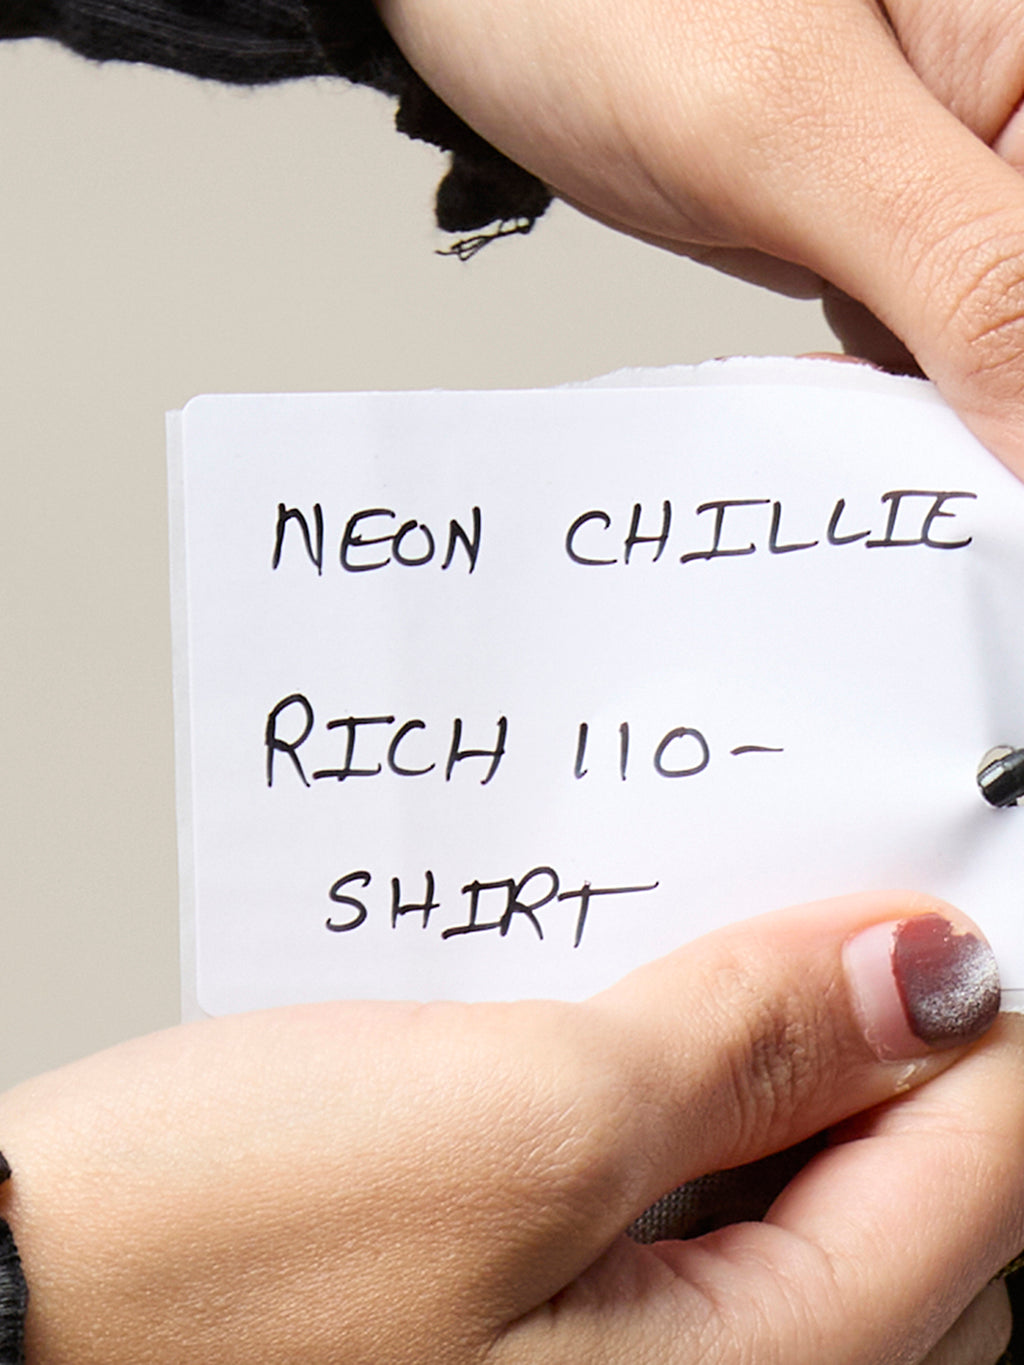 NEON CHILLIE
RICH 110-
SHIRT